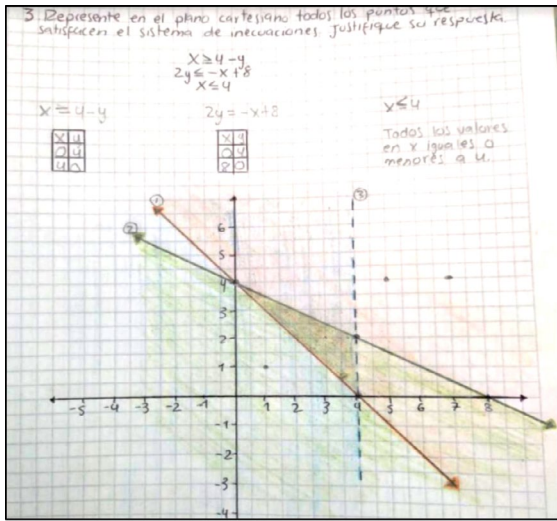 3. Represente en el plano cartesiano todos los puntos que
satisfacen el sistema de inecuaciones. Justifique su respuesta.
x ≥ 4 - y
2y ≤ -x + 8
x ≤ 4
x = 4 - y
2y = -x + 8
x ≤ 4
x y
0 4
4 0
x y
0 4
8 0
Todos los valores
en x iguales o
menores a 4.
① ② ③
6
5
4
3
2
1
-5 -4 -3 -2 -1 1 2 3 4 5 6 7 8
-1
-2
-3
-4